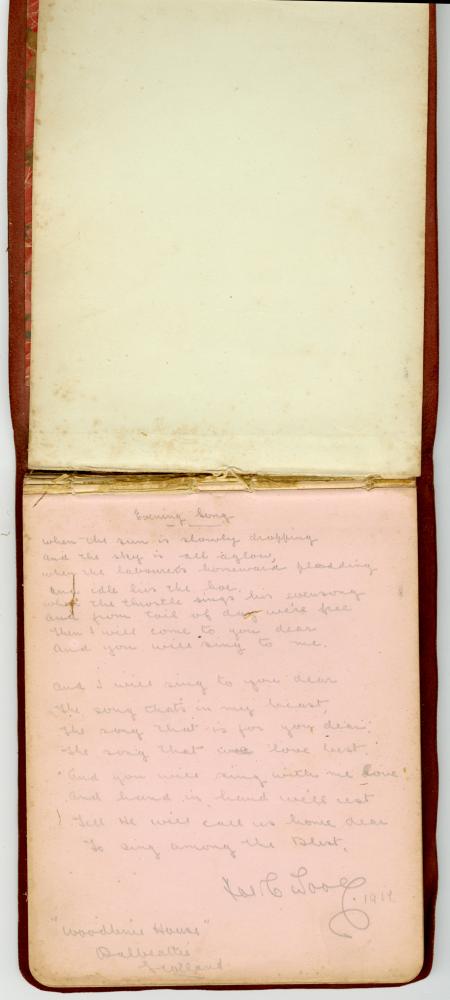 Evening Song
when the sun is slowly dropping
and the sky is all aglow,
when the labourers homeward plodding
and idle lies the hoe.
when the throstle sings his evensong
and from toil of day we're free
then I will come to you dear
and you will sing to me.
and I will sing to you dear
the song thats in my breast,
the song that is for you dear,
the song that we love best
And you will sing with me love
and hand in hand we'll rest
Till He will call us home dear
To sing among the Blest.
"Woodbine House"
Dalbeattie
Scotland